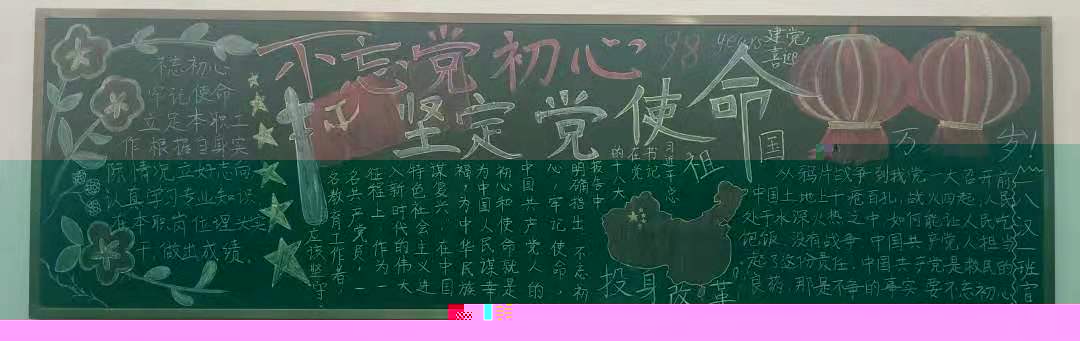 不忘党初心
98 years
建党
喜迎
坚定党使命
不忘初心
牢记使命
立足本职工
作根据自身实
际情况立好志向
认真学习专业知识
在本职岗位埋头
干,做出成绩。
习近平总
书记
在党
的十八大
报告中
明确指出,不忘初
心,牢记使命,
中国共产党人的
初心和使命就是
为中国人民谋幸
福,为中华民族
谋复兴,在中国
特色社会主义进
入新时代的伟大
征程上,作为一
名共产党员,一
名教育工作者,
应该坚守
祖国万岁!
从鸦片战争到找党一大召开前
中国土地上千疮百孔,战火四起,人民
处于水深火热之中,如何能让人民吃
饱饭,没有战争,中国共产党人担当
起了这份责任,中国共产党是救民的
良药,那是不争的事实,要不忘初心
投身改革
一八汉一班宣